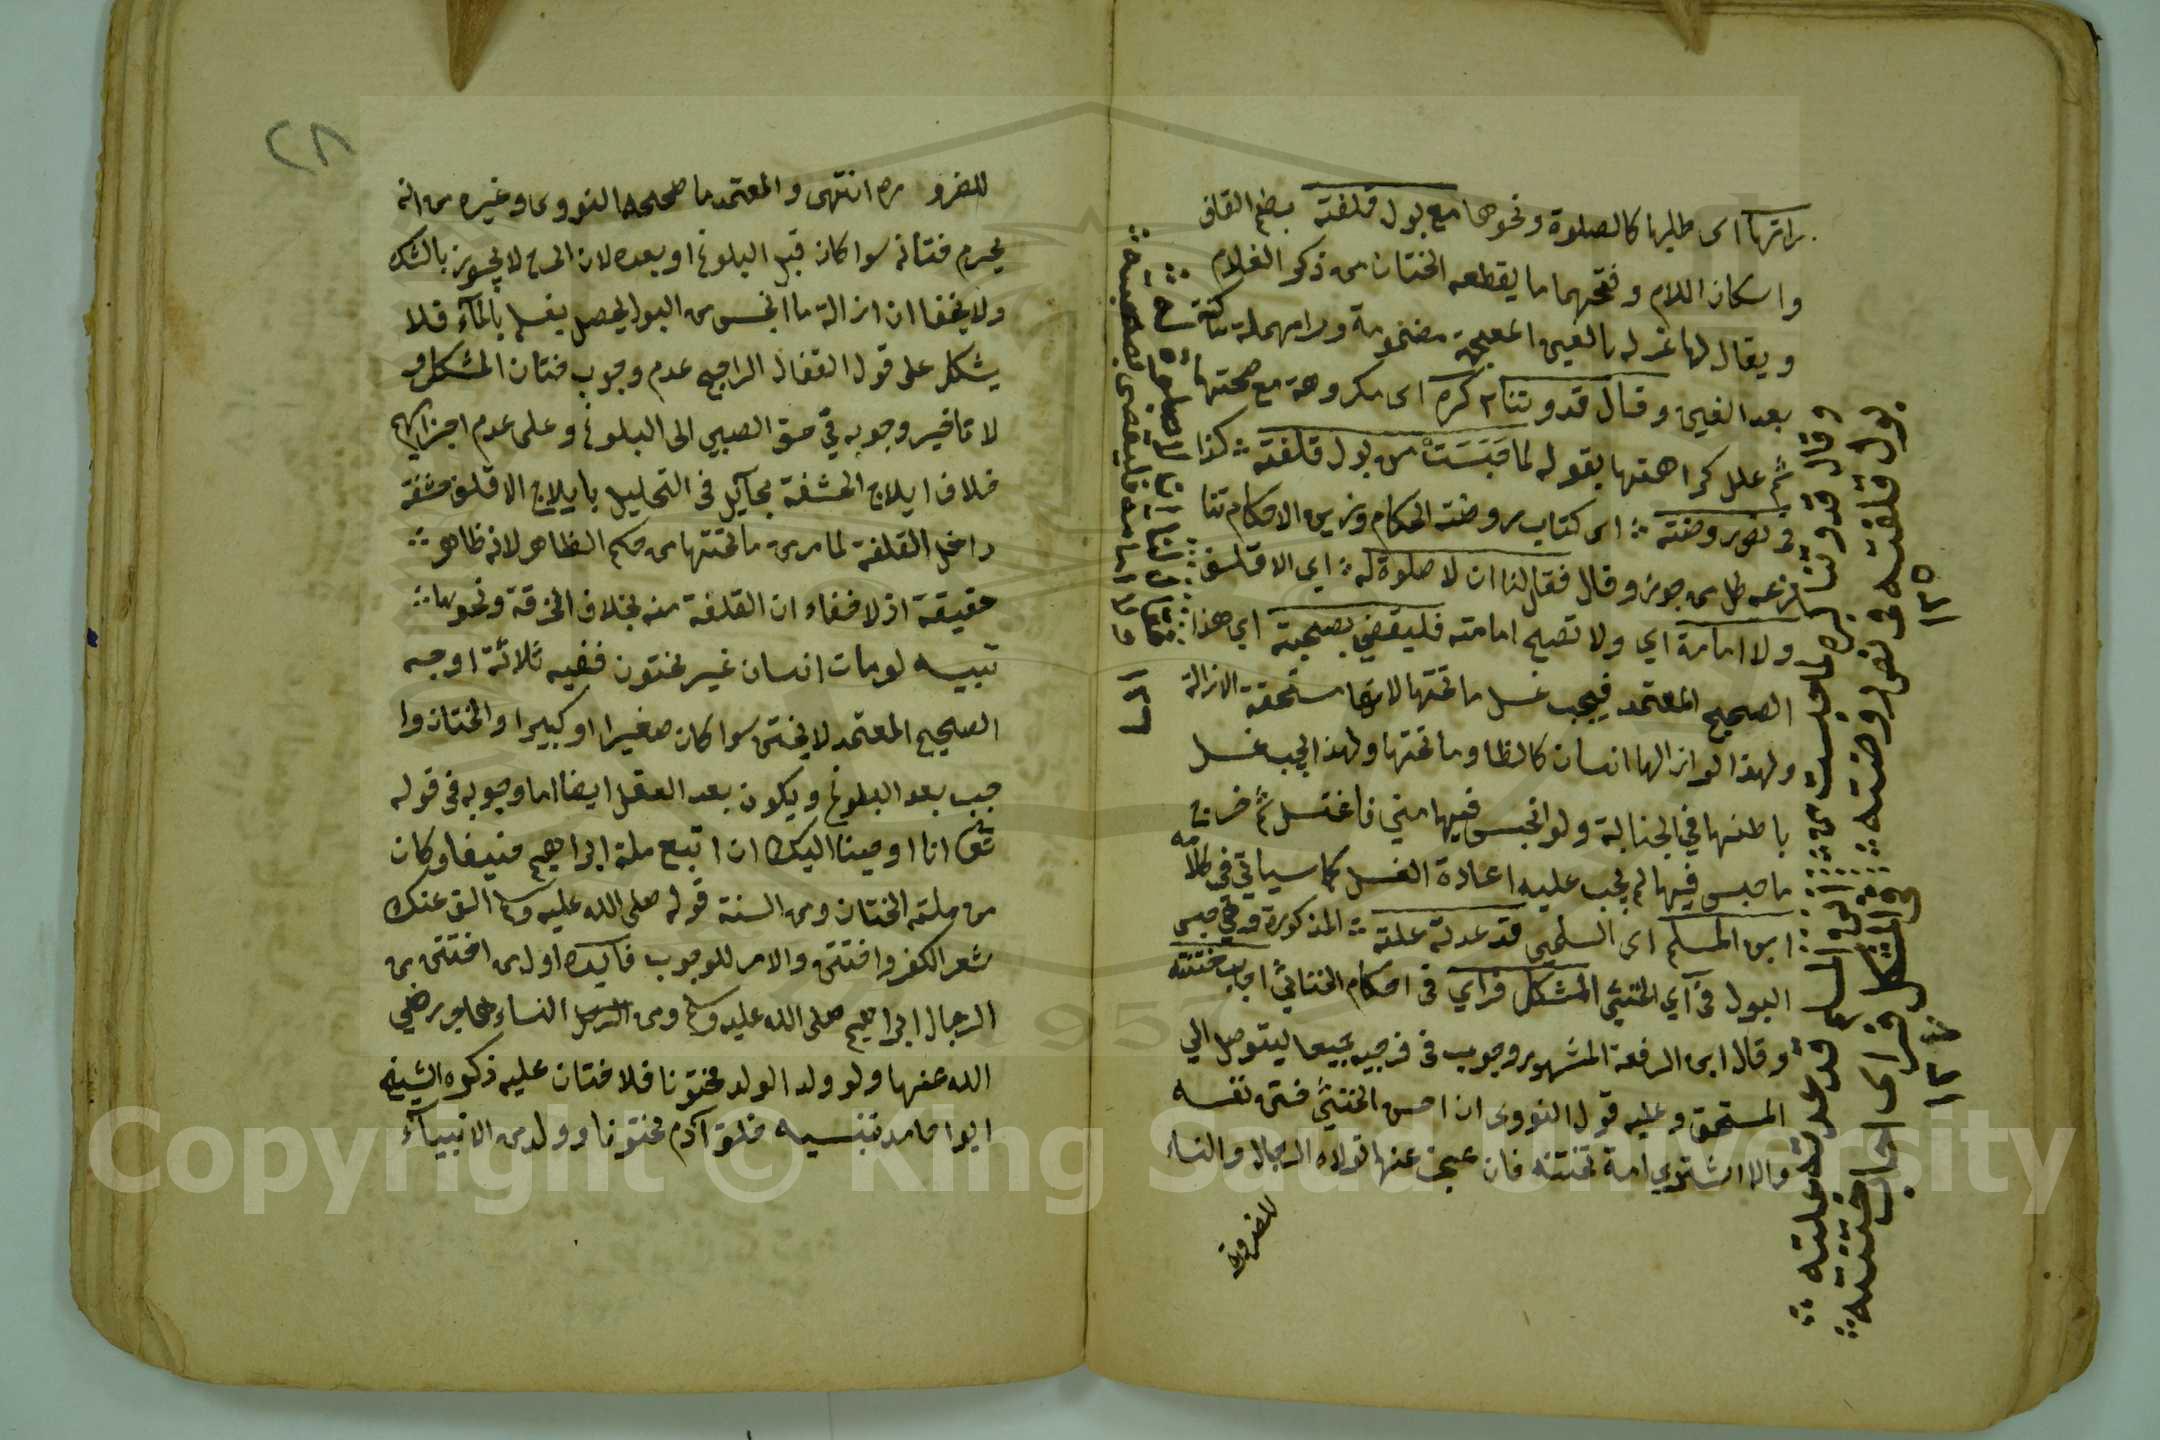 براتها اى طلبها كالصلوة ونحوها مع بول قلفته بضم القاف
واسكان اللام وفتحهما ما يقطعه الختان من ذكر الغلام
ويقال لها غرله بالغين المعجمة مضمومة وراء مهملة ساكنة
بعد الغين وقال قدوتنا كره اى مكروهة مع صحتها
ثم علل كراهتها بقوله لما حبست من بول قلفته كذا
فى نص روضته اى كتاب روضته الحكام وزين الاحكام تنا
فزعه ظل من جوز وقال فقال لنا ان لا صلوة له اي الاقلف
ولا امامة اي ولا تصح امامته فليقضي بصحبته اي هذا
الصحيح المعتمد فيجب غسل ما تحتها لانها مستحقة الازالة
ولهذا لو ازالها انسان كالظا وما تحتها ولهذا يجب غسل
باطنها في الجنابة ولو انحبس فيها مني فاغتسل ثم خرج
ما حبس فيها لم يجب عليه اعادة الغسل كما سياتي فى كلامه
ابن المسلم اى السلمي قد عدته علته المذكورة وفي حبس
البول فى آي الخنثي المشكل فرآي فى احكام الخناثي اجاب ختنته
وقال ابن الرفعة المشهور وجوب فى فرجيه جميعا ليتوصل الي
المستحق وعليه قول النووى ان احسن الخنثي ختن نفسه
والا اشترى امة تختنه فان عجز عنها تولاه الرجال والنساء
للضرورة
وقال قدوتنا كره لما حبست من
بول قلفته فى نص روضته
١٣٥
ابن المسلم قد عدته علته
فى المشكل فراى اجاب ختنته
١٣٧
فليقضى بصحبته
١٣٦
٢٨
للضرو ره انتهى والمعتمد ما صححه النووى وغيره من انه
يحرم ختانه سوا كان قبل البلوغ او بعده لان الجرح لا يجوز بالشك
ولا يخفا ان ازالة ما انحبس من البول يحصل بغسله بالماء فلا
يشكل على قول القفال الراجح عدم وجوب ختان المشكل و
لا تاخير وجوبه فى حق الصبي الى البلوغ وعلى عدم اجزايهم
خلاف ايلاج الحشفة بحآيل فى التحليل بايلاج الاقلف حشفة
داخل القلفة لما مر من ما تحتها من حكم الظاهر لانه ظاهر
حقيقة اذ لا خفاء ان القلفة منه بخلاف الخرقة ونحوها
تنبيه لو مات انسان غير مختون ففيه ثلاثة اوجه
الصحيح المعتمد لا يختن سوا كان صغيرا او كبيرا والختان وا
جب بعد البلوغ ويكون بعد العقل ايضا اما وجوبه فى قوله
تعالى انا اوحينا اليك ان اتبع ملة ابراهيم حنيفا وكان
من ملته الختان ومن السنة قوله صلى الله عليه وسلم الق عنك
شعر الكفر واختتن والامر للوجوب فايدة اول من اختتن من
الرجال ابراهيم صلى الله عليه وسلم ومن النساء هاجر رضي
الله عنها ولو ولد الولد مختونا فلا ختان عليه ذكره الشيخ
ابو حامد تنبيه خلق آدم مختونا وولد من الانبيآء
Copyright © King Saud University